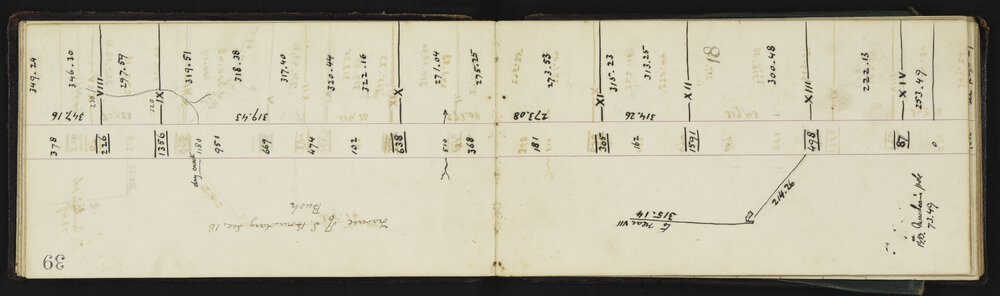 39
349.24
346.30
VIII
297.59
IX
319.51
318.38
317.40
320.44
322.16
X
271.04
275.25
273.53
XI
315.23
313.25
XII
81
300.48
XIII
222.13
XIV
253.49
347.16
230
120
319.43
273.08
314.26
378
226
1356
1180
951
669
474
102
638
510
368
181
305
162
1591
498
87
0
dry creek
Traverse of S. Boundary Sec. 18
Bush
to near VII
315.14
214.26
pole
73.49